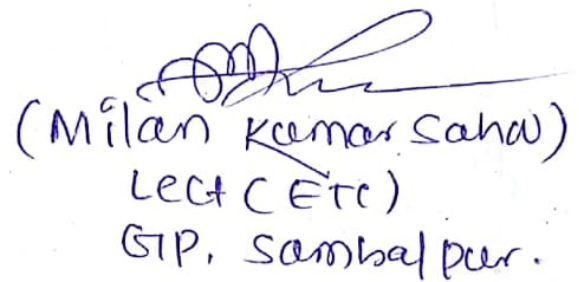 (Milan Kumar Sahu)
Lect (ETC)
GP, Sambalpur.